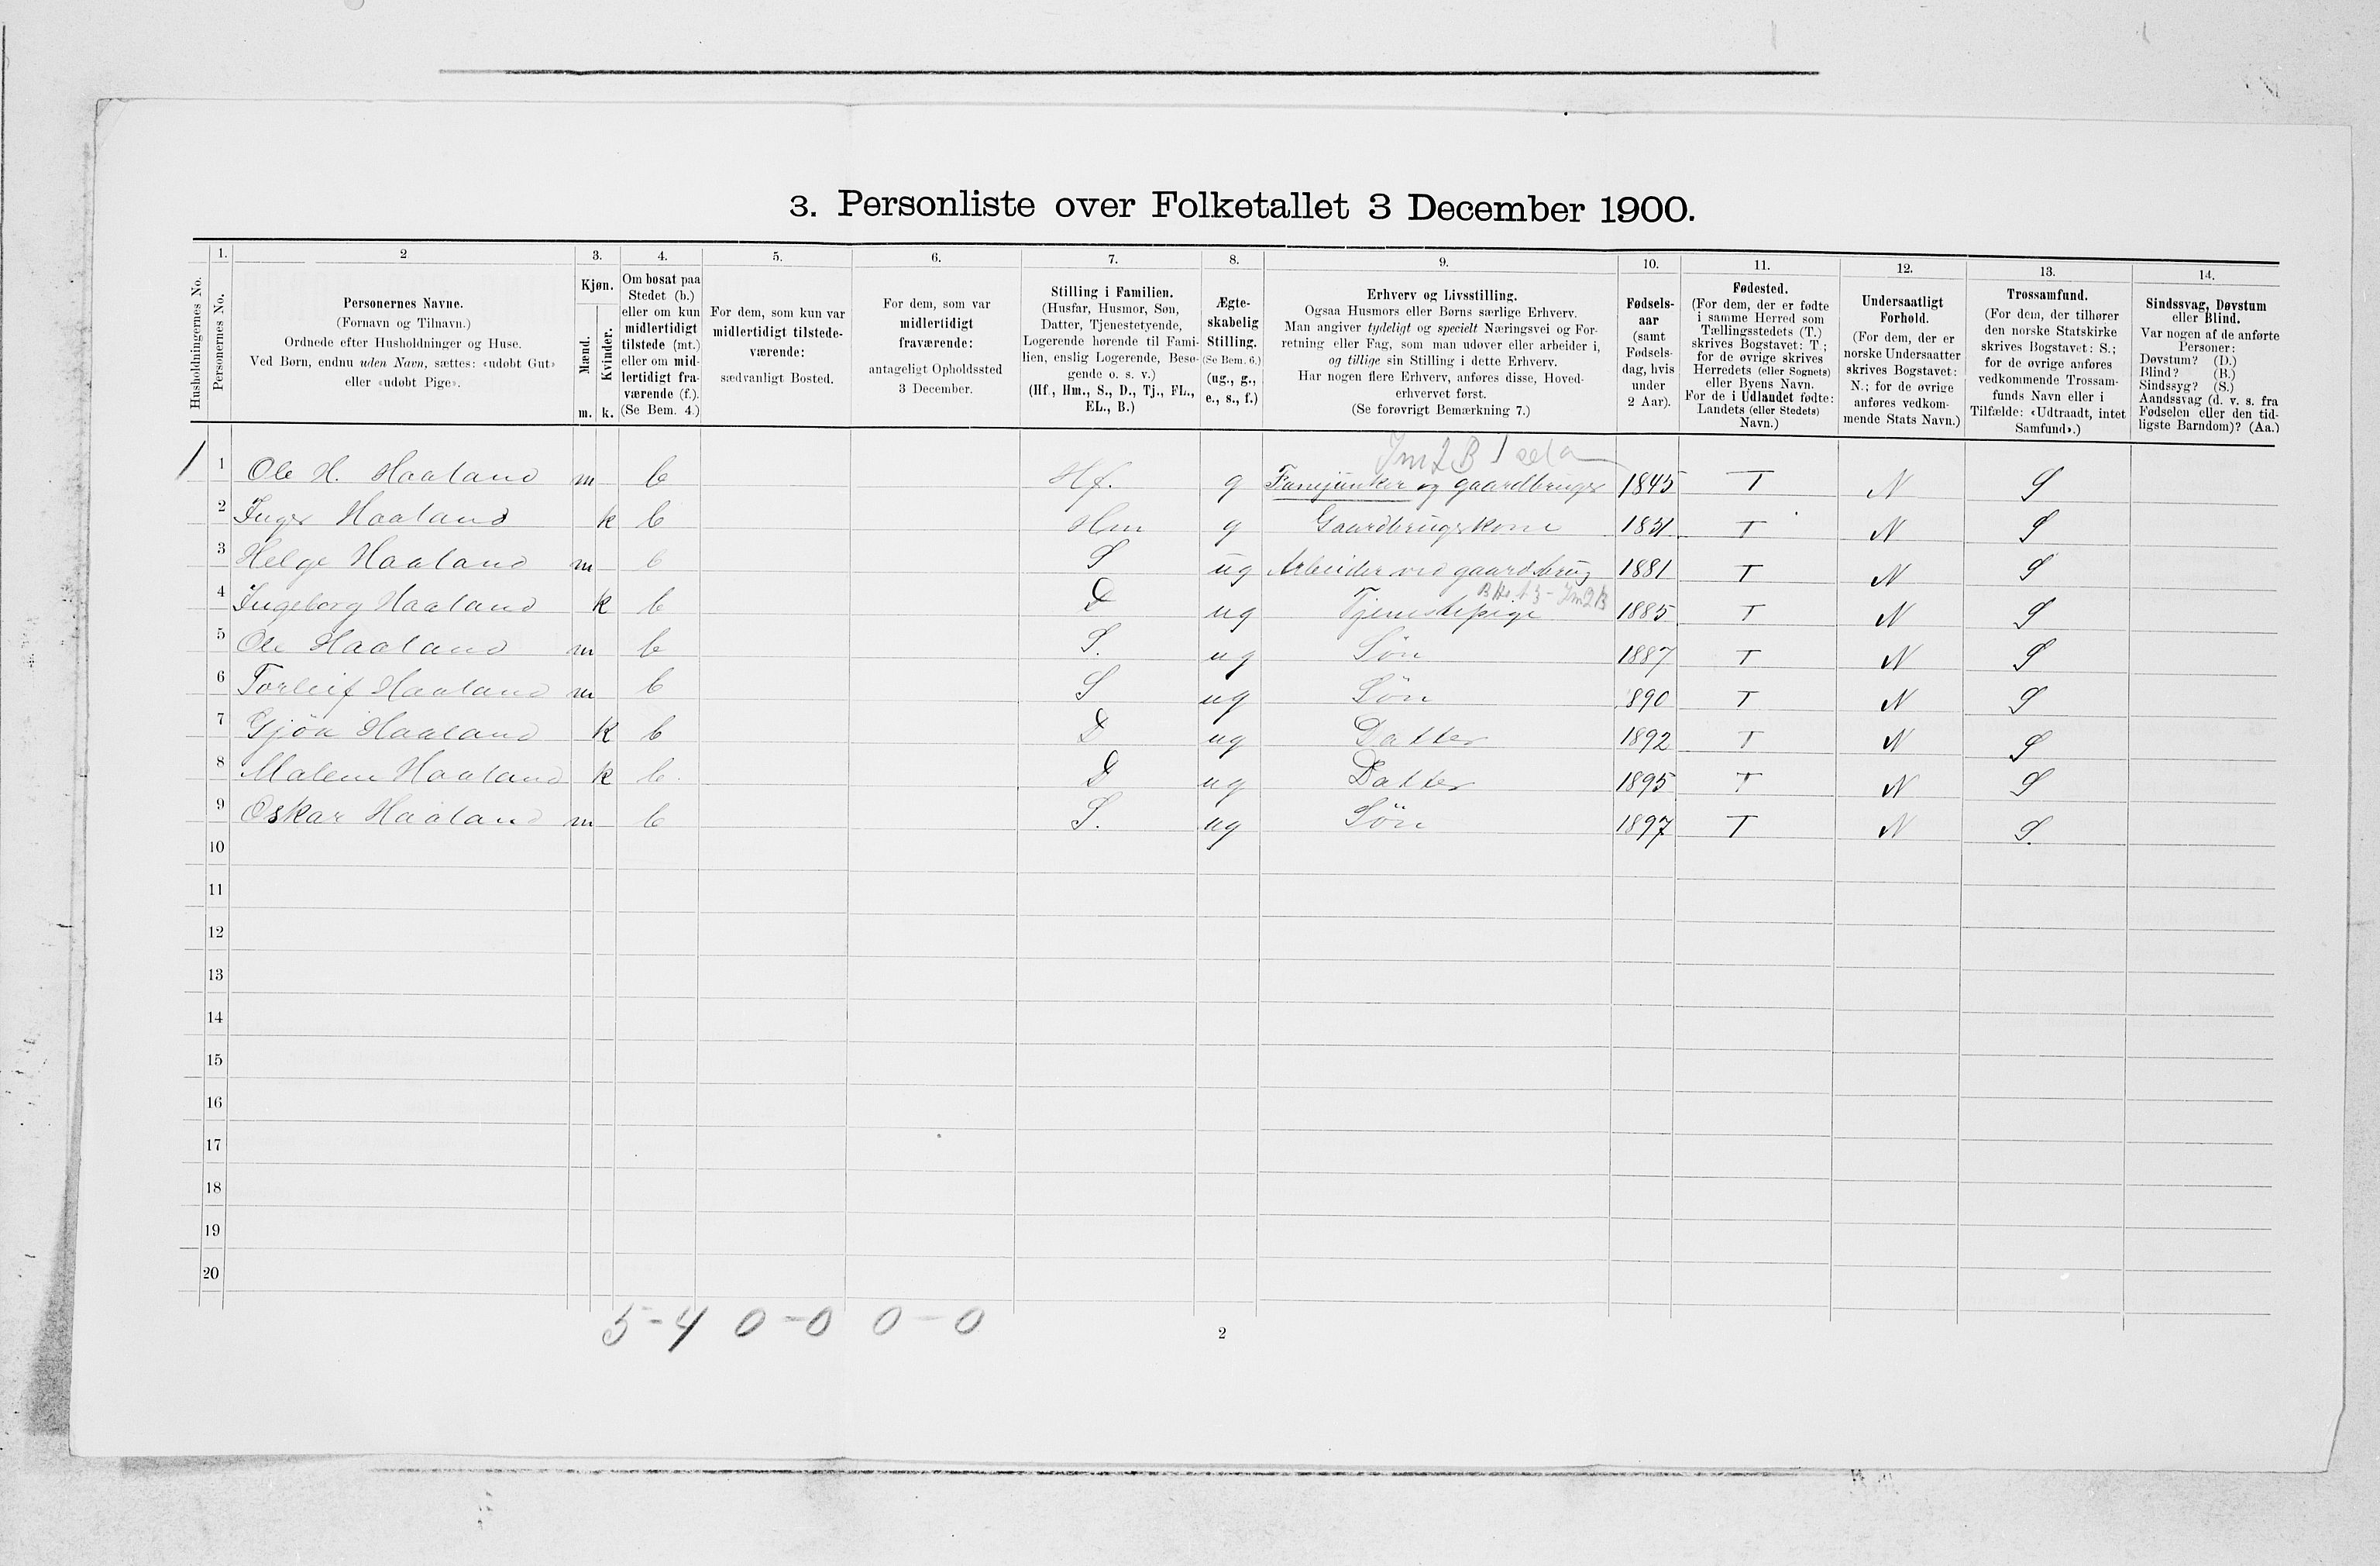 3. Personliste over Folketallet 3 December 1900.
1. 2 3. 4. 5. 6. 7. 8. 9. 10. 11. 12. 13. 14.
Husholdningernes No.
Personernes No.
Personernes Navne.
(Fornavn og Tilnavn.)
Ordnede efter Husholdninger og Huse.
Ved Børn, endnu uden Navn, sættes: «udøbt Gut»
eller «udøbt Pige».
Kjøn.
Mænd.
Kvinder.
m. k.
Om bosat paa
Stedet (b.)
eller om kun
midlertidigt
tilstede (mt.)
eller om mid-
lertidigt fra-
værende (f.).
(Se Bem. 4.)
For dem, som kun var
midlertidigt tilstede-
værende:
sædvanligt Bosted.
For dem, som var
midlertidigt
fraværende:
antageligt Opholdssted
3 December.
Stilling i Familien.
(Husfar, Husmor, Søn,
Datter, Tjenestetyende,
Logerende hørende til Fami-
lien, enslig Logerende, Besø-
gende o. s. v.)
(Hf., Hm., S., D., Tj., FL.,
EL., B.)
Ægte-
skabelig
Stilling.
(Se Bem. 6.)
(ug., g.,
e., s., f.)
Erhverv og Livsstilling.
Ogsaa Husmors eller Børns særlige Erhverv.
Man angiver tydeligt og specielt Næringsvei og For-
retning eller Fag, som man udøver eller arbeider i,
og tillige sin Stilling i dette Erhverv.
Har nogen flere Erhverv, anføres disse, Hoved-
erhvervet først.
(Se forøvrigt Bemærkning 7.)
Fødsels-
aar
(samt
Fødsels-
dag, hvis
under
2 Aar).
Fødested.
(For dem, der er fødte
i samme Herred som
Tællingsstedets (T.)
skrives Bogstavet: T.;
for de øvrige skrives
Herredets (eller Sognets)
eller Byens Navn.
For de i Udlandet fødte:
Landets (eller Stedets)
Navn.)
Undersaatligt
Forhold.
(For dem, der er
norske Undersaatter
skrives Bogstavet:
N.; for de øvrige
anføres vedkom-
mende Stats Navn.)
Trossamfund.
(For dem, der tilhører
den norske Statskirke
skrives Bogstavet: S.;
for de øvrige anføres
vedkommende Trossam-
funds Navn eller i
Tilfælde: «Udtraadt, intet
Samfund».)
Sindssvag, Døvstum
eller Blind.
Var nogen af de anførte
Personer:
Døvstum? (D.)
Blind? (B.)
Sindssyg? (S.)
Aandssvag (d. v. s. fra
Fødselen eller den tid-
ligste Barndom)? (Aa.)
1 1 Ole H. Haaland m b Hf. g Fanejunker og gaardbruger 1845 T N S
2 Inger Haaland k b Hm g Gaardbrugskone 1851 T N S
3 Helge Haaland m b S ug Arbeider ved gaardsbrug 1881 T N S
4 Ingeborg Haaland k b D ug Tjenestepige 1885 T N S
5 Ole Haaland m b S. ug Søn 1887 T N S
6 Torleif Haaland m b S ug Søn 1890 T N S
7 Gjøa Haaland k b D ug Datter 1892 T N S
8 Malene Haaland k b. D ug Datter 1895 T N S
9 Oskar Haaland m b S. ug Søn 1897 T N S.
10
11
12
13
14
15
16
17
18
19
20
5-4 0-0 0-0
2